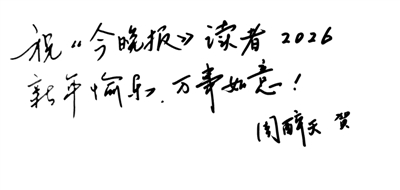 祝《今晚报》读者 2026
新年愉乐、万事如意！
周醉天 贺